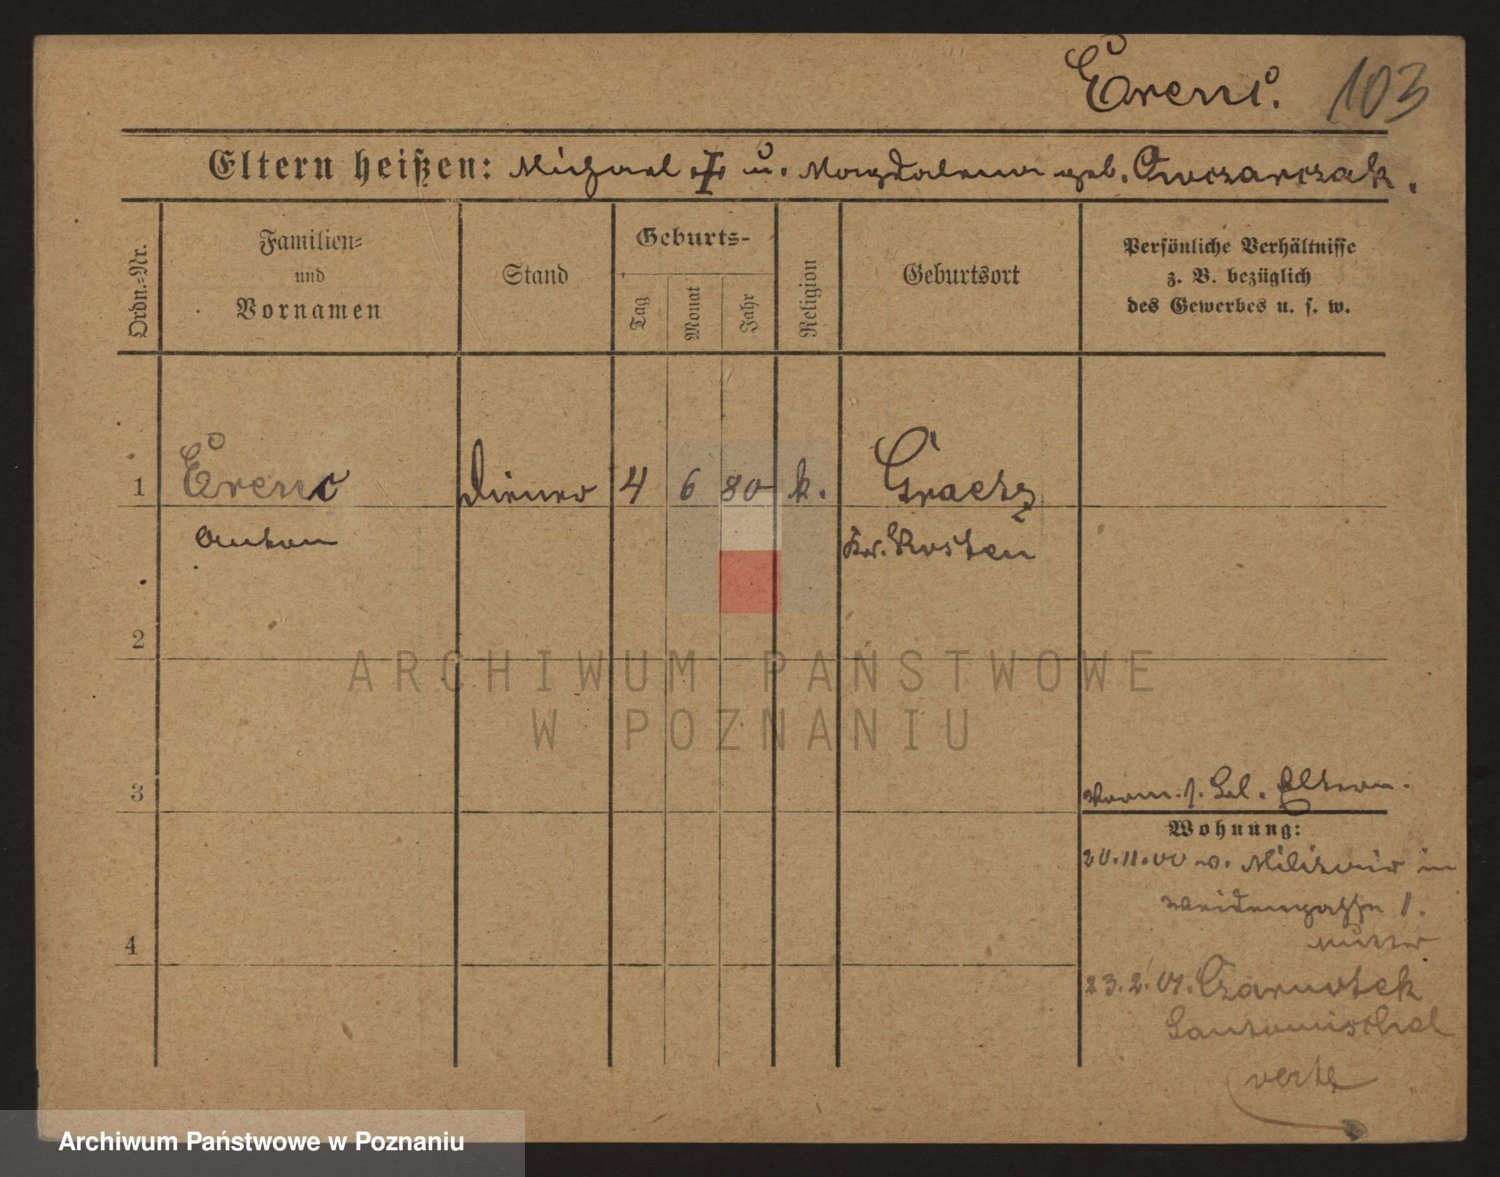 Erenc. 103
Eltern heißen: Michael † u. Magdalena geb. Owczarczak.
Ordn.-Nr.
Familien-
und
Vornamen
Stand
Geburts-
Tag
Monat
Jahr
Religion
Geburtsort
Persönliche Verhältnisse
z. B. bezüglich
des Gewerbes u. s. w.
1 Erenc Diener 4 6 80 k. Graetz
Anton Kr. Kosten
2
ARCHIWUM PAŃSTWOWE
W POZNANIU
3
Eltern.
Wohnung:
20.11.00 v. Militair in
Weidengasse 1.
Mutter
4
23.2.01. Czarnotek
Santomischel
verte
Archiwum Państwowe w Poznaniu